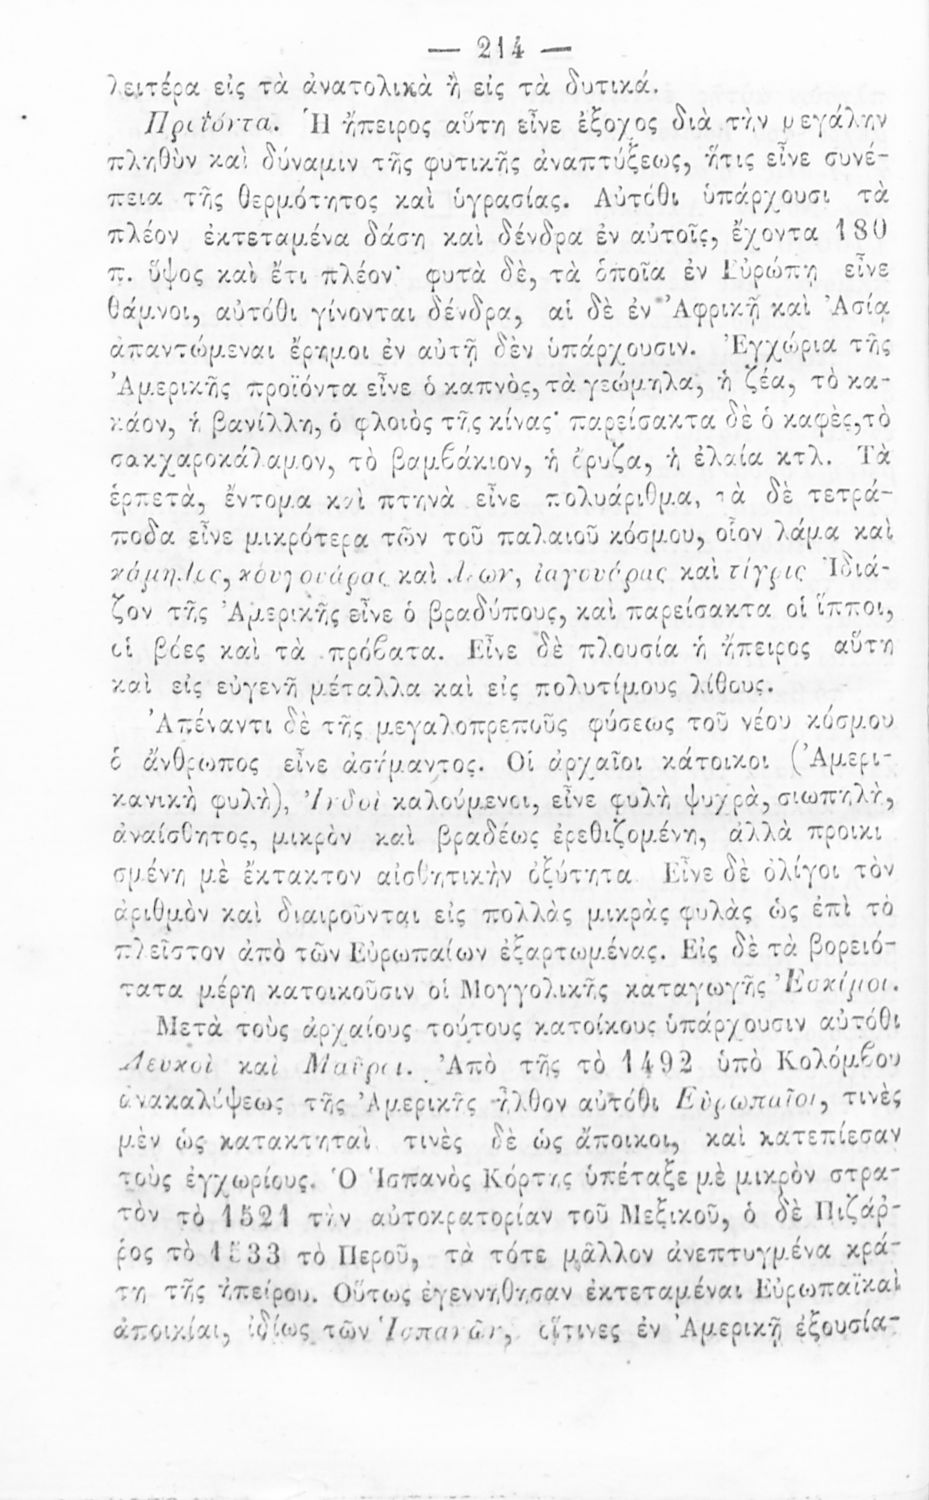 — 214 —
λειτέρα εἰς τὰ ἀνατολικὰ ἢ εἰς τὰ δυτικά.
Προϊόντα. Ἡ ἤπειρος αὕτη εἶνε ἔξοχος διὰ τὴν μεγάλην
πληθὺν καὶ δύναμιν τῆς φυτικῆς ἀναπτύξεως, ἥτις εἶνε συνέ-
πεια τῆς θερμότητος καὶ ὑγρασίας. Αὐτόθι ὑπάρχουσι τὰ
πλέον ἐκτεταμένα δάση καὶ δένδρα ἐν αὐτοῖς, ἔχοντα 180
π. ὕψος καὶ ἔτι πλέον· φυτὰ δὲ, τὰ ὁποῖα ἐν Εὐρώπῃ εἶνε
θάμνοι, αὐτόθι γίνονται δένδρα, αἱ δὲ ἐν Ἀφρικῇ καὶ Ἀσίᾳ
ἀπαντώμεναι ἔρημοι ἐν αὐτῇ δὲν ὑπάρχουσιν. Ἐγχώρια τῆς
Ἀμερικῆς προϊόντα εἶνε ὁ καπνὸς, τὰ γεώμηλα, ἡ ζέα, τὸ κα-
κάον, ἡ βανίλλη, ὁ φλοιὸς τῆς κίνας· παρείσακτα δὲ ὁ καφὲς, τὸ
σακχαροκάλαμον, τὸ βαμβάκιον, ἡ ὄρυζα, ἡ ἐλαία κτλ. Τὰ
ἑρπετὰ, ἔντομα καὶ πτηνὰ εἶνε πολυάριθμα, τὰ δὲ τετρά-
ποδα εἶνε μικρότερα τῶν τοῦ παλαιοῦ κόσμου, οἷον λάμα καὶ
κάμηλος, κουγουάρας καὶ λέων, ἰαγουάρας καὶ τίγρις Ἰδιά-
ζον τῆς Ἀμερικῆς εἶνε ὁ βραδύπους, καὶ παρείσακτα οἱ ἵπποι,
οἱ βόες καὶ τὰ πρόβατα. Εἶνε δὲ πλουσία ἡ ἤπειρος αὕτη
καὶ εἰς εὐγενῆ μέταλλα καὶ εἰς πολυτίμους λίθους.
Ἀπέναντι δὲ τῆς μεγαλοπρεποῦς φύσεως τοῦ νέου κόσμου
ὁ ἄνθρωπος εἶνε ἀσήμαντος. Οἱ ἀρχαῖοι κάτοικοι (Ἀμερι-
κανικὴ φυλὴ), Ἰνδοὶ καλούμενοι, εἶνε φυλὴ ψυχρὰ, σιωπηλὴ,
ἀναίσθητος, μικρὸν καὶ βραδέως ἐρεθιζομένη, ἀλλὰ προικι
σμένη μὲ ἔκτακτον αἰσθητικὴν ὀξύτητα Εἶνε δὲ ὀλίγοι τὸν
ἀριθμὸν καὶ διαιροῦνται εἰς πολλὰς μικρὰς φυλὰς ὡς ἐπὶ τὸ
πλεῖστον ἀπὸ τῶν Εὐρωπαίων ἐξαρτωμένας. Εἰς δὲ τὰ βορειό-
τατα μέρη κατοικοῦσιν οἱ Μογγολικῆς καταγωγῆς Ἐσκίμοι.
Μετὰ τοὺς ἀρχαίους τούτους κατοίκους ὑπάρχουσιν αὐτόθι
Λευκοὶ καὶ Μαῦροι. Ἀπὸ τῆς τὸ 1492 ὑπὸ Κολόμβου
ἀνακαλύψεως τῆς Ἀμερικῆς ἦλθον αὐτόθι Εὐρωπαῖοι, τινὲς
μὲν ὡς κατακτηταὶ τινὲς δὲ ὡς ἄποικοι, καὶ κατεπίεσαν
τοὺς ἐγχωρίους. Ὁ Ἱσπανὸς Κόρτης ὑπέταξε μὲ μικρὸν στρα-
τὸν τὸ 1521 τὴν αὐτοκρατορίαν τοῦ Μεξικοῦ, ὁ δὲ Πιζάρ-
ρος τὸ 1533 τὸ Περοῦ, τὰ τότε μᾶλλον ἀνεπτυγμένα κρά-
τη τῆς ἠπείρου. Οὕτως ἐγεννήθησαν ἐκτεταμέναι Εὐρωπαϊκαὶ
ἀποικίαι, ἰδίως τῶν Ἱσπανῶν, οἵτινες ἐν Ἀμερικῇ ἐξουσία-